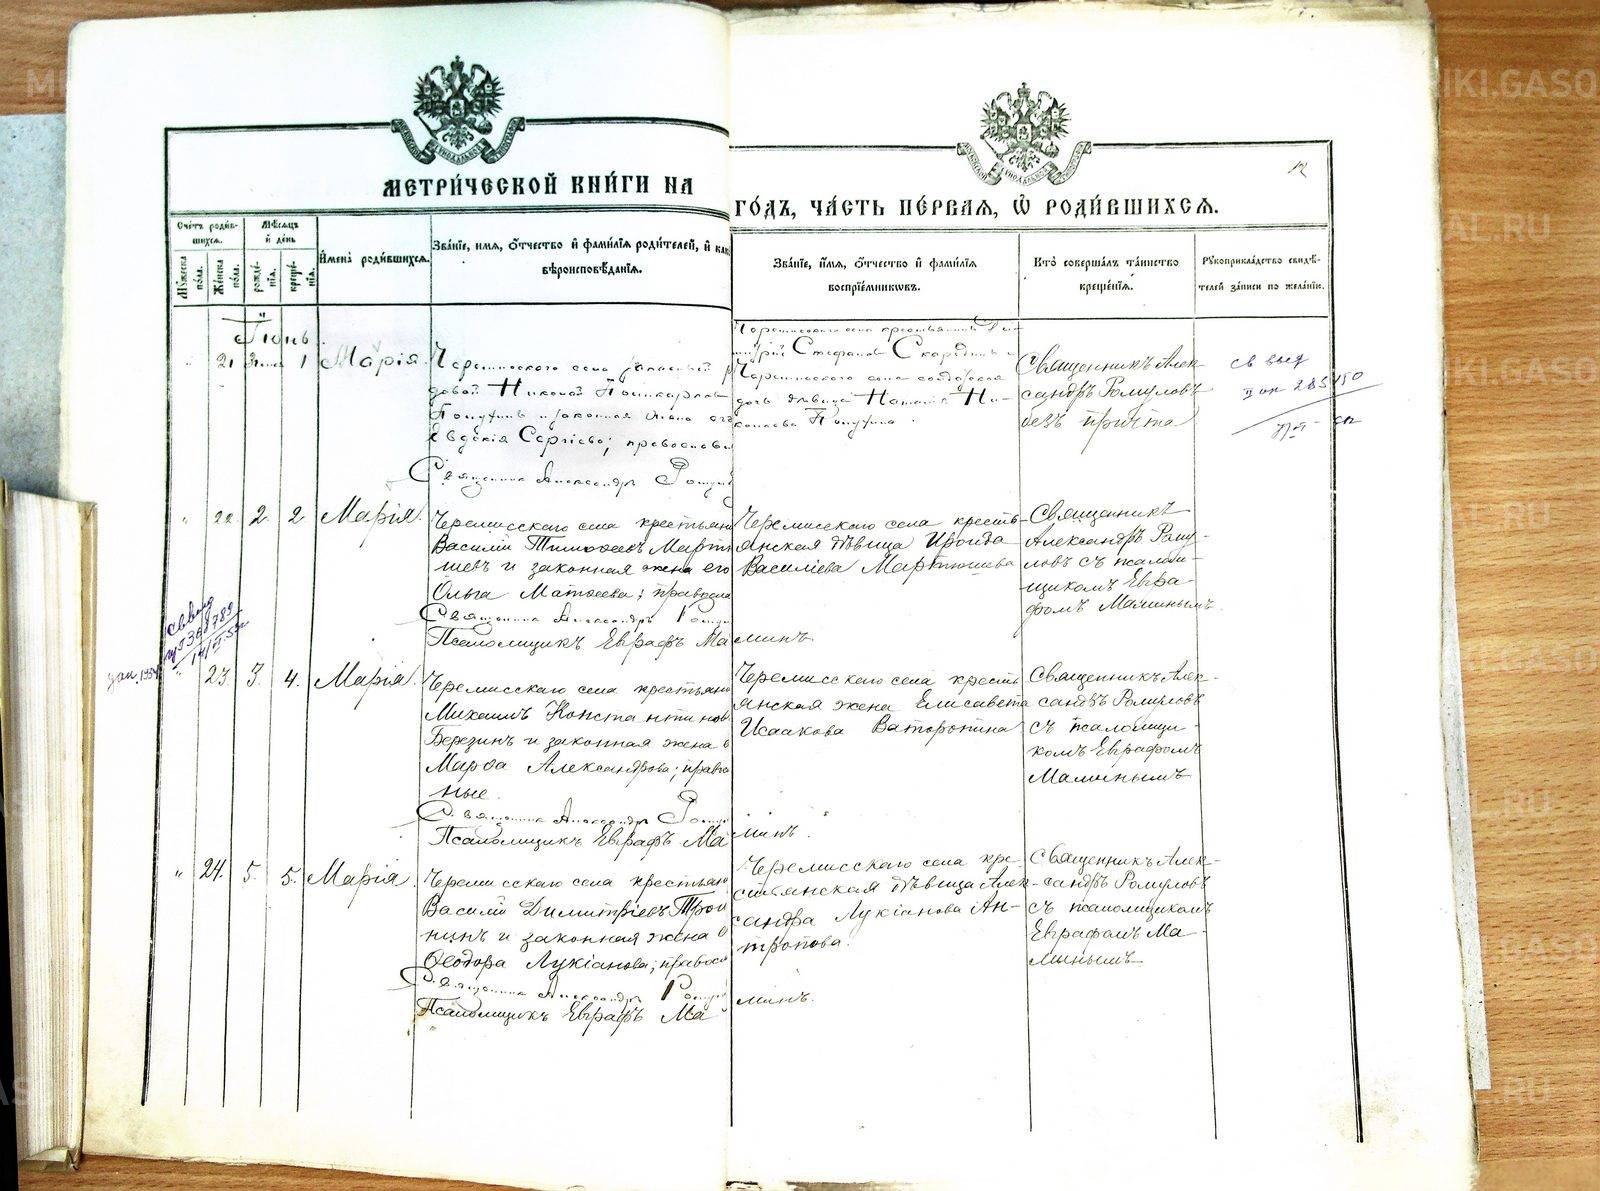 МЕТРИ́ЧЕСКОЙ КНИ́ГИ НА
ГО́ДЪ, ЧА́СТЬ ПЕ́РВАЯ, Ѿ РОДИ́ВШИХСЯ.
12
Сче́тъ роди́в-
шихся.
Му́жеска по́ла.
Же́нска по́ла.
Мѣ́сяцъ
и҆ де́нь
рожде́-
нїя.
креще́-
нїя.
И҆мена̀ роди́вшихся.
Зва́нїе, и҆мя, о҆́тчество и҆ фами́лїя роди́телей, и҆ как
вѣроисповѣ́данїя.
Зва́нїе, и҆́мя, о҆́тчество и҆ фами́лїя
воспрїе́мниковъ.
Кто̀ соверша́лъ та́инство
креще́нїя.
Рꙋкоприкла́дство свидѣ́-
телей за́писи по жела́нїю.
Іюнь.
21 1 Марія
Черемисскаго села запасный р
довой Никонъ
Попугинъ и законная жена его
Евдокія Сергіева; православн
Священникъ Александръ Рому
Черемисскаго села крестьянинъ Ди-
митрій Стефановъ Скорынинъ и
Черемисскаго села солдатская
дочь дѣвица Наталія Ни-
конова Попугина.
Священникъ Алек-
сандръ Ромуловъ
безъ причта
св выд
" 22 2 2 Марія.
Черемисскаго села крестьяни
Василій Тимоѳеевъ Март
шевъ и законная жена его
Ольга Матѳеева; правосла
Священникъ Александръ Рому
Псаломщикъ Евграфъ Ма
минъ
Черемисскаго села кресть-
янская дѣвица Ироида
Василіева Мартюшева
Священникъ
Александръ Рому-
ловъ съ псалом-
щикомъ Евгра-
фомъ Маминымъ.
св выд
" 23 3. 4. Марія.
Черемисскаго села крестьяни
Михаилъ Константинов
Березинъ и законная жена е
Марѳа Александрова; правос
ные.
Священникъ Александръ Рому
Псаломщикъ Евграфъ Ма
минъ.
Черемисскаго села кресть
янская жена Елисавета
Исаакова Ваторопина
Священникъ Алек-
сандръ Ромуловъ
съ псаломщи-
комъ Евграфомъ
Маминымъ
" 24. 5. 5. Марія.
Черемисскаго села крестьян
Василій Димитріевъ Трои
нинъ и законная жена е
Ѳеодора Лукіанова; правос
Священникъ Александръ Рому
Псаломщикъ Евграфъ Ма
минъ.
Черемисскаго села кре-
стьянская дѣвица Алек-
сандра Лукіанова Ан-
тропова.
Священникъ Алек-
сандръ Ромуловъ
съ псаломщикомъ
Евграфомъ Ма-
минымъ